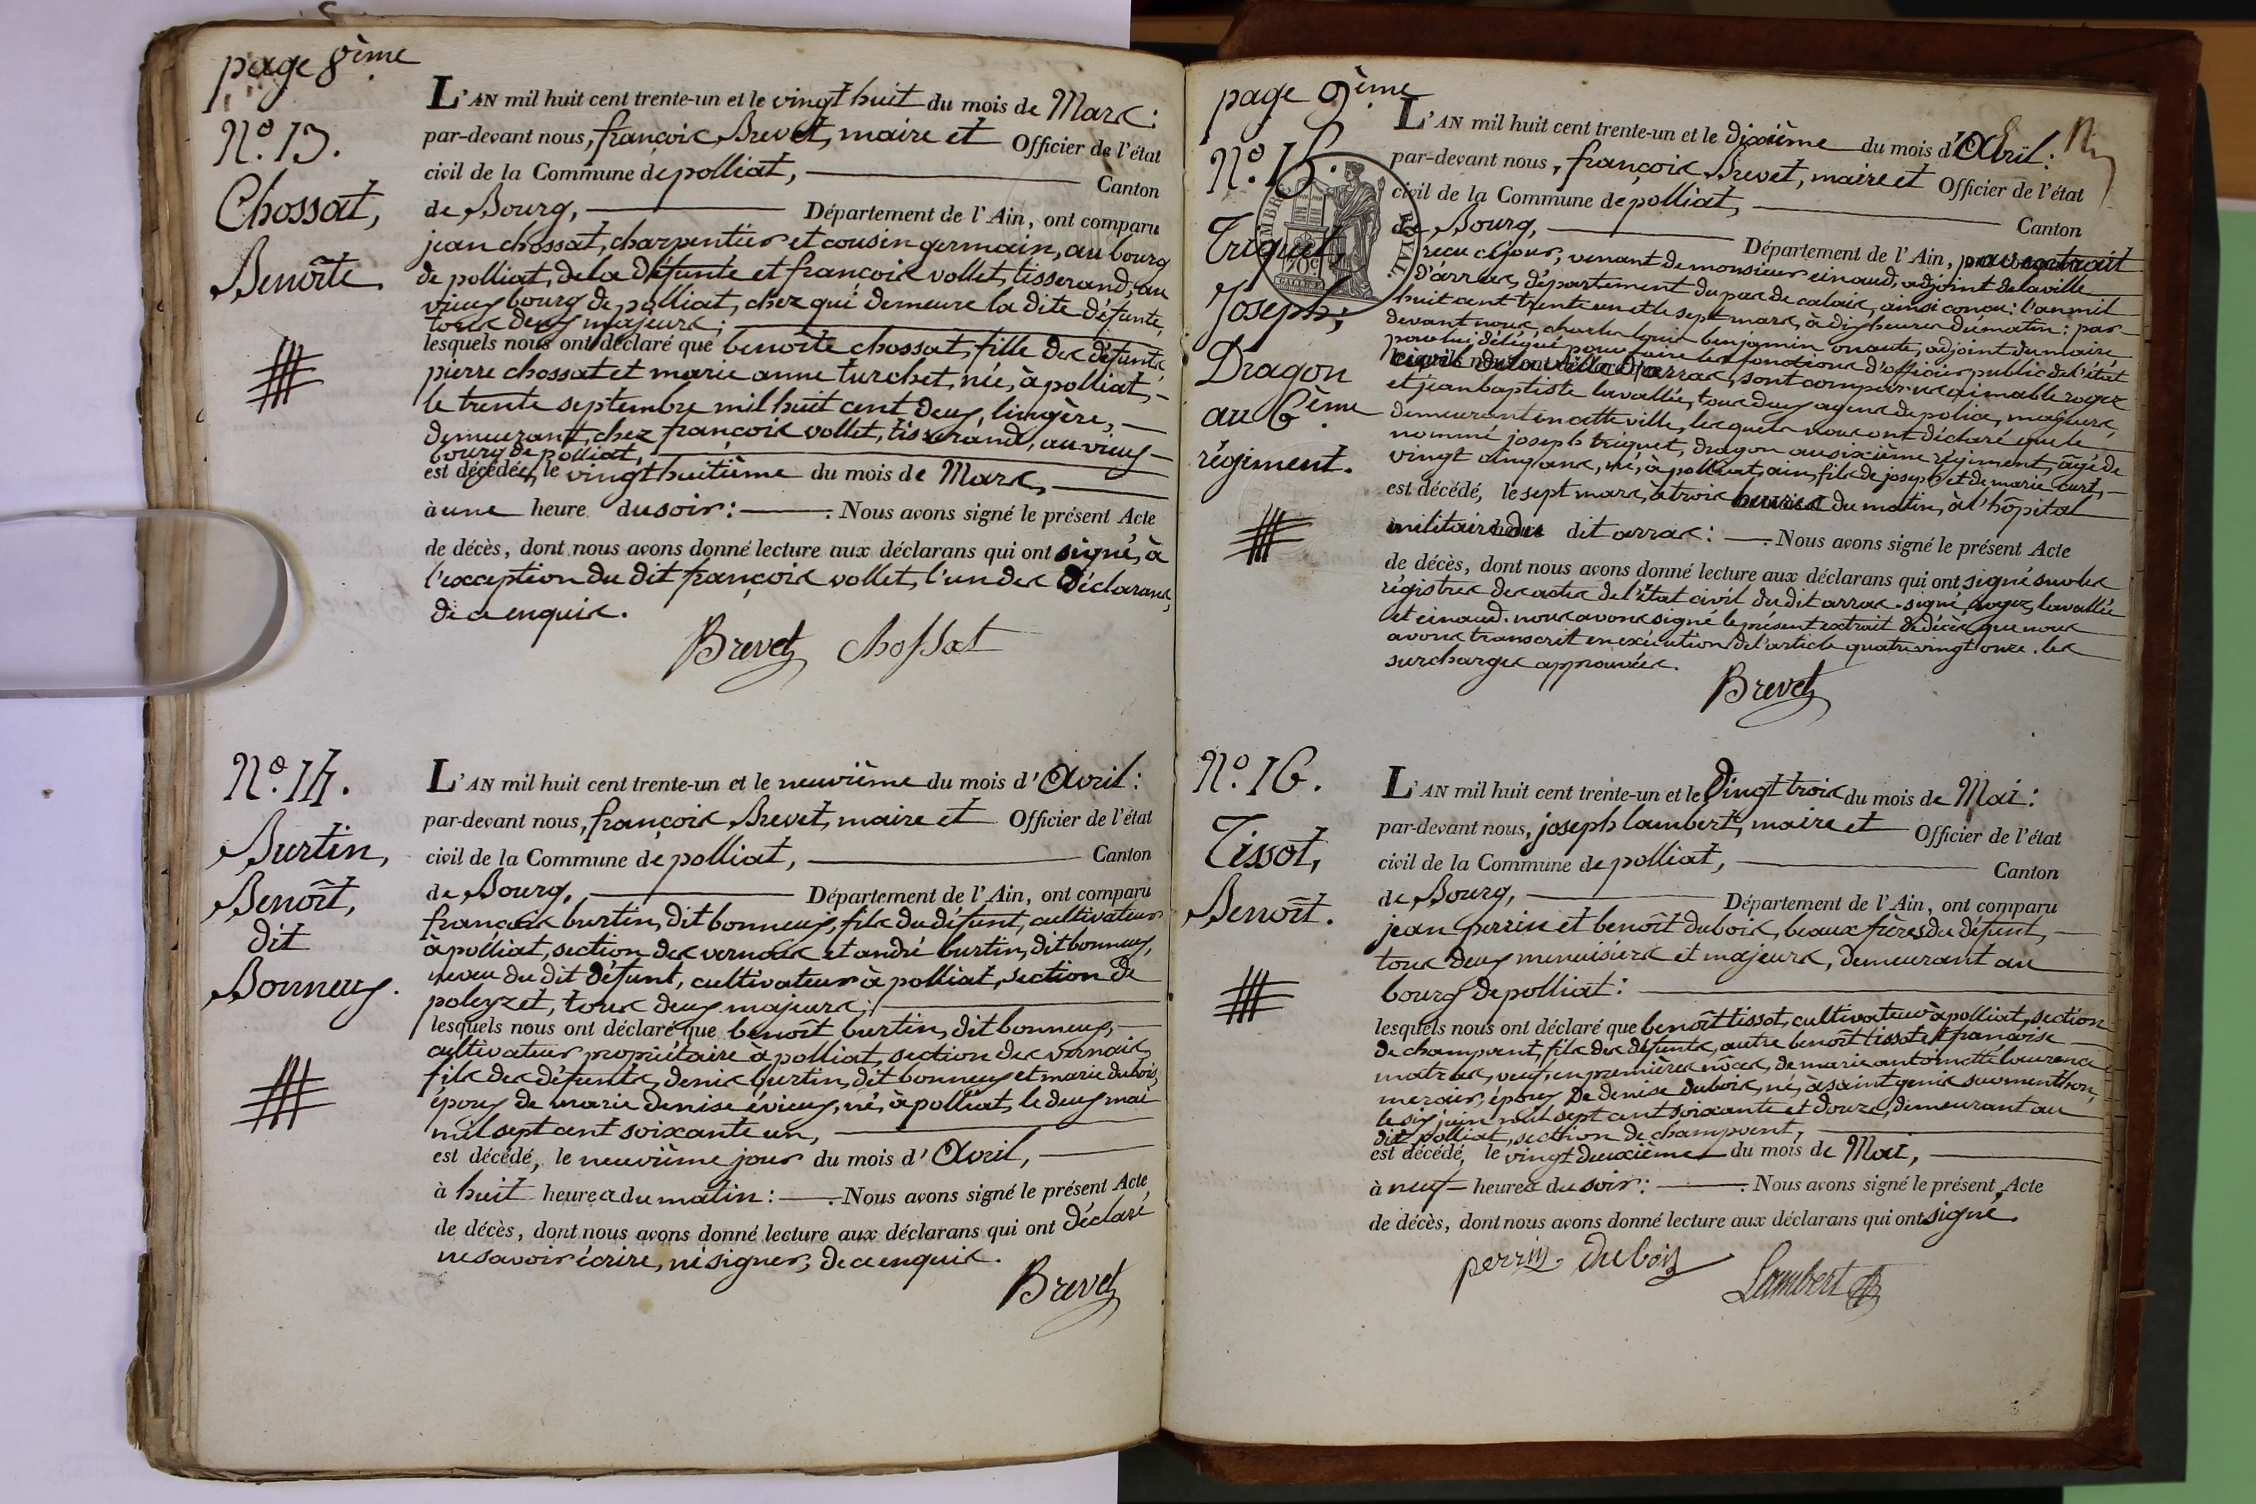 page 8ème
N° 13.
Chossat,
Benoîte.
L'AN mil huit cent trente-un et le vingt huit du mois de Mars:
par-devant nous, françois Brevet, maire et Officier de l'état
civil de la Commune de polliat, Canton
de Bourg, Département de l'Ain, ont comparu
jean chossat, charpentier et cousin germain, au bourg
de polliat, de la défunte et françois vollet, tisserand, au
vieux bourg de polliat, chez qui demeure la dite défunte,
tous deux majeurs;
lesquels nous ont déclaré que benoîte chossat, fille des défunts
pierre chossat et marie anne turchet, née, à polliat,
le trente septembre mil huit cent deux, lingère,
demeurant, chez françois vollet, tisserand, au vieux
bourg de polliat,
est décédée, le vingt huitième du mois de Mars,
à une heure du soir: Nous avons signé le présent Acte
de décès, dont nous avons donné lecture aux déclarans qui ont signé, à
l'exception du dit françois vollet, l'un des déclarans,
de ce enquis.
Brevet chossat
N° 14.
Burtin,
Benoît,
dit
Bonneux.
L'AN mil huit cent trente-un et le neuvième du mois d'Avril:
par-devant nous, françois Brevet, maire et Officier de l'état
civil de la Commune de polliat, Canton
de Bourg, Département de l'Ain, ont comparu
françois burtin, dit bonneux, fils du défunt, cultivateur
à polliat, section des vernais et andré burtin, dit bonneux,
neveu du dit défunt, cultivateur à polliat, section de
poleyzet, tous deux majeurs;
lesquels nous ont déclaré que benoît burtin, dit bonneux,
cultivateur propriétaire à polliat, section des vernais,
fils des défunts, denis burtin, dit bonneux et marie dubois,
époux de marie denise évieux, né, à polliat, le deux mai
mil sept cent soixante un,
est décédé, le neuvième jour du mois d'Avril,
à huit heures du matin: Nous avons signé le présent Acte
de décès, dont nous avons donné lecture aux déclarans qui ont déclaré
ne savoir écrire, ni signer, de ce enquis.
Brevet
page 9ème
N° 15.
Triquet,
Joseph,
Dragon
au 6ème
régiment.
TIMBRE ROYAL
70c
L'AN mil huit cent trente-un et le dixième du mois d'Avril:
par-devant nous, françois Brevet, maire et Officier de l'état
civil de la Commune de polliat, Canton
de Bourg, Département de l'Ain, par extrait
reçu ce jour, venant de monsieur einaud, adjoint de la ville
d'arras, département du pas de calais, ainsi conçu: l'an mil
huit cent trente un et le sept mars, à dix heures du matin: par-
devant nous, charles louis benjamin adjoint du maire
par lui délégué pour faire les fonctions d'officier public de l'état
civil de la ville d'arras, sont comparus aimable rogez
et jean baptiste lavallée, tous deux agens de police, majeurs,
demeurant en cette ville, lesquels nous ont déclaré que le
nommé joseph triquet, dragon au sixième régiment, âgé de
vingt cinq ans, né, à polliat, ain, fils de joseph et de marie curt,
est décédé, le sept mars, à trois heures du matin, à l'hôpital
militaire du dit arras: Nous avons signé le présent Acte
de décès, dont nous avons donné lecture aux déclarans qui ont signé sur les
régistres des actes de l'état civil du dit arras. signé, rogez, lavallée
et einaud. nous avons signé le présent extrait de décès que nous
avons transcrit en exécution de l'article quatre vingt onze. les
surcharges approuvées.
Brevet
N° 16.
Tissot,
Benoît.
L'AN mil huit cent trente-un et le Vingt trois du mois de Mai:
par-devant nous, joseph lambert, maire et Officier de l'état
civil de la Commune de polliat, Canton
de Bourg, Département de l'Ain, ont comparu
jean perrin et benoît dubois, beaux frères du défunt,
tous deux menuisiers et majeurs, demeurant au
bourg de polliat:
lesquels nous ont déclaré que benoît tissot, cultivateur à polliat, section
de champvent, fils des défunts, autre benoît tissot et françoise
matras, veuf, en premières nôces, de marie antoinette laurence
mercier, époux de denise dubois, né, à saint genis sur menthon,
le six juin mil sept cent soixante et douze, demeurant au
dit polliat, section de champvent,
est décédé, le vingt deuxième du mois de Mai,
à neuf heures du soir: Nous avons signé le présent Acte
de décès, dont nous avons donné lecture aux déclarans qui ont signé.
perrin dubois Lambert